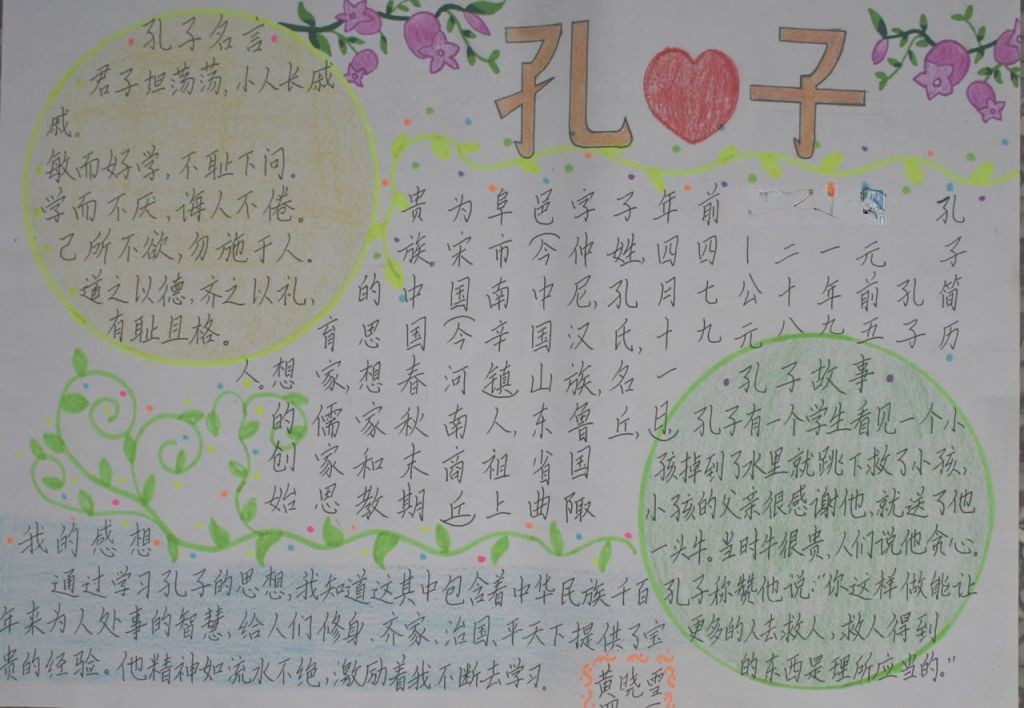 孔子
孔子名言
君子坦荡荡,小人长戚
戚。
敏而好学,不耻下问.
学而不厌,诲人不倦。
己所不欲,勿施于人.
道之以德,齐之以礼,
有耻且格。
孔子简历
孔子
元前五
一年九
二十八
丨公元
前四七九
年四月十一日,
子姓,孔氏,名丘,
字仲尼,汉族,鲁国陬
邑(今中国山东省曲
阜市南辛镇)人,祖上
为宋国(今河南商丘)
贵族。中国春秋末期
的思想家和教
育家,儒家思
想的创始
人。
孔子故事
孔子有一个学生看见一个小
孩掉到了水里就跳下救了小孩,
小孩的父亲很感谢他,就送了他
一头牛。当时牛很贵,人们说他贪心.
孔子称赞他说:“你这样做能让
更多的人去救人,救人得到
的东西是理所应当的。”
我的感想
通过学习孔子的思想,我知道这其中包含着中华民族千百
年来为人处事的智慧,给人们修身、齐家、治国、平天下提供了宝
贵的经验。他精神如流水不绝,激励着我不断去学习.
黄晓雪